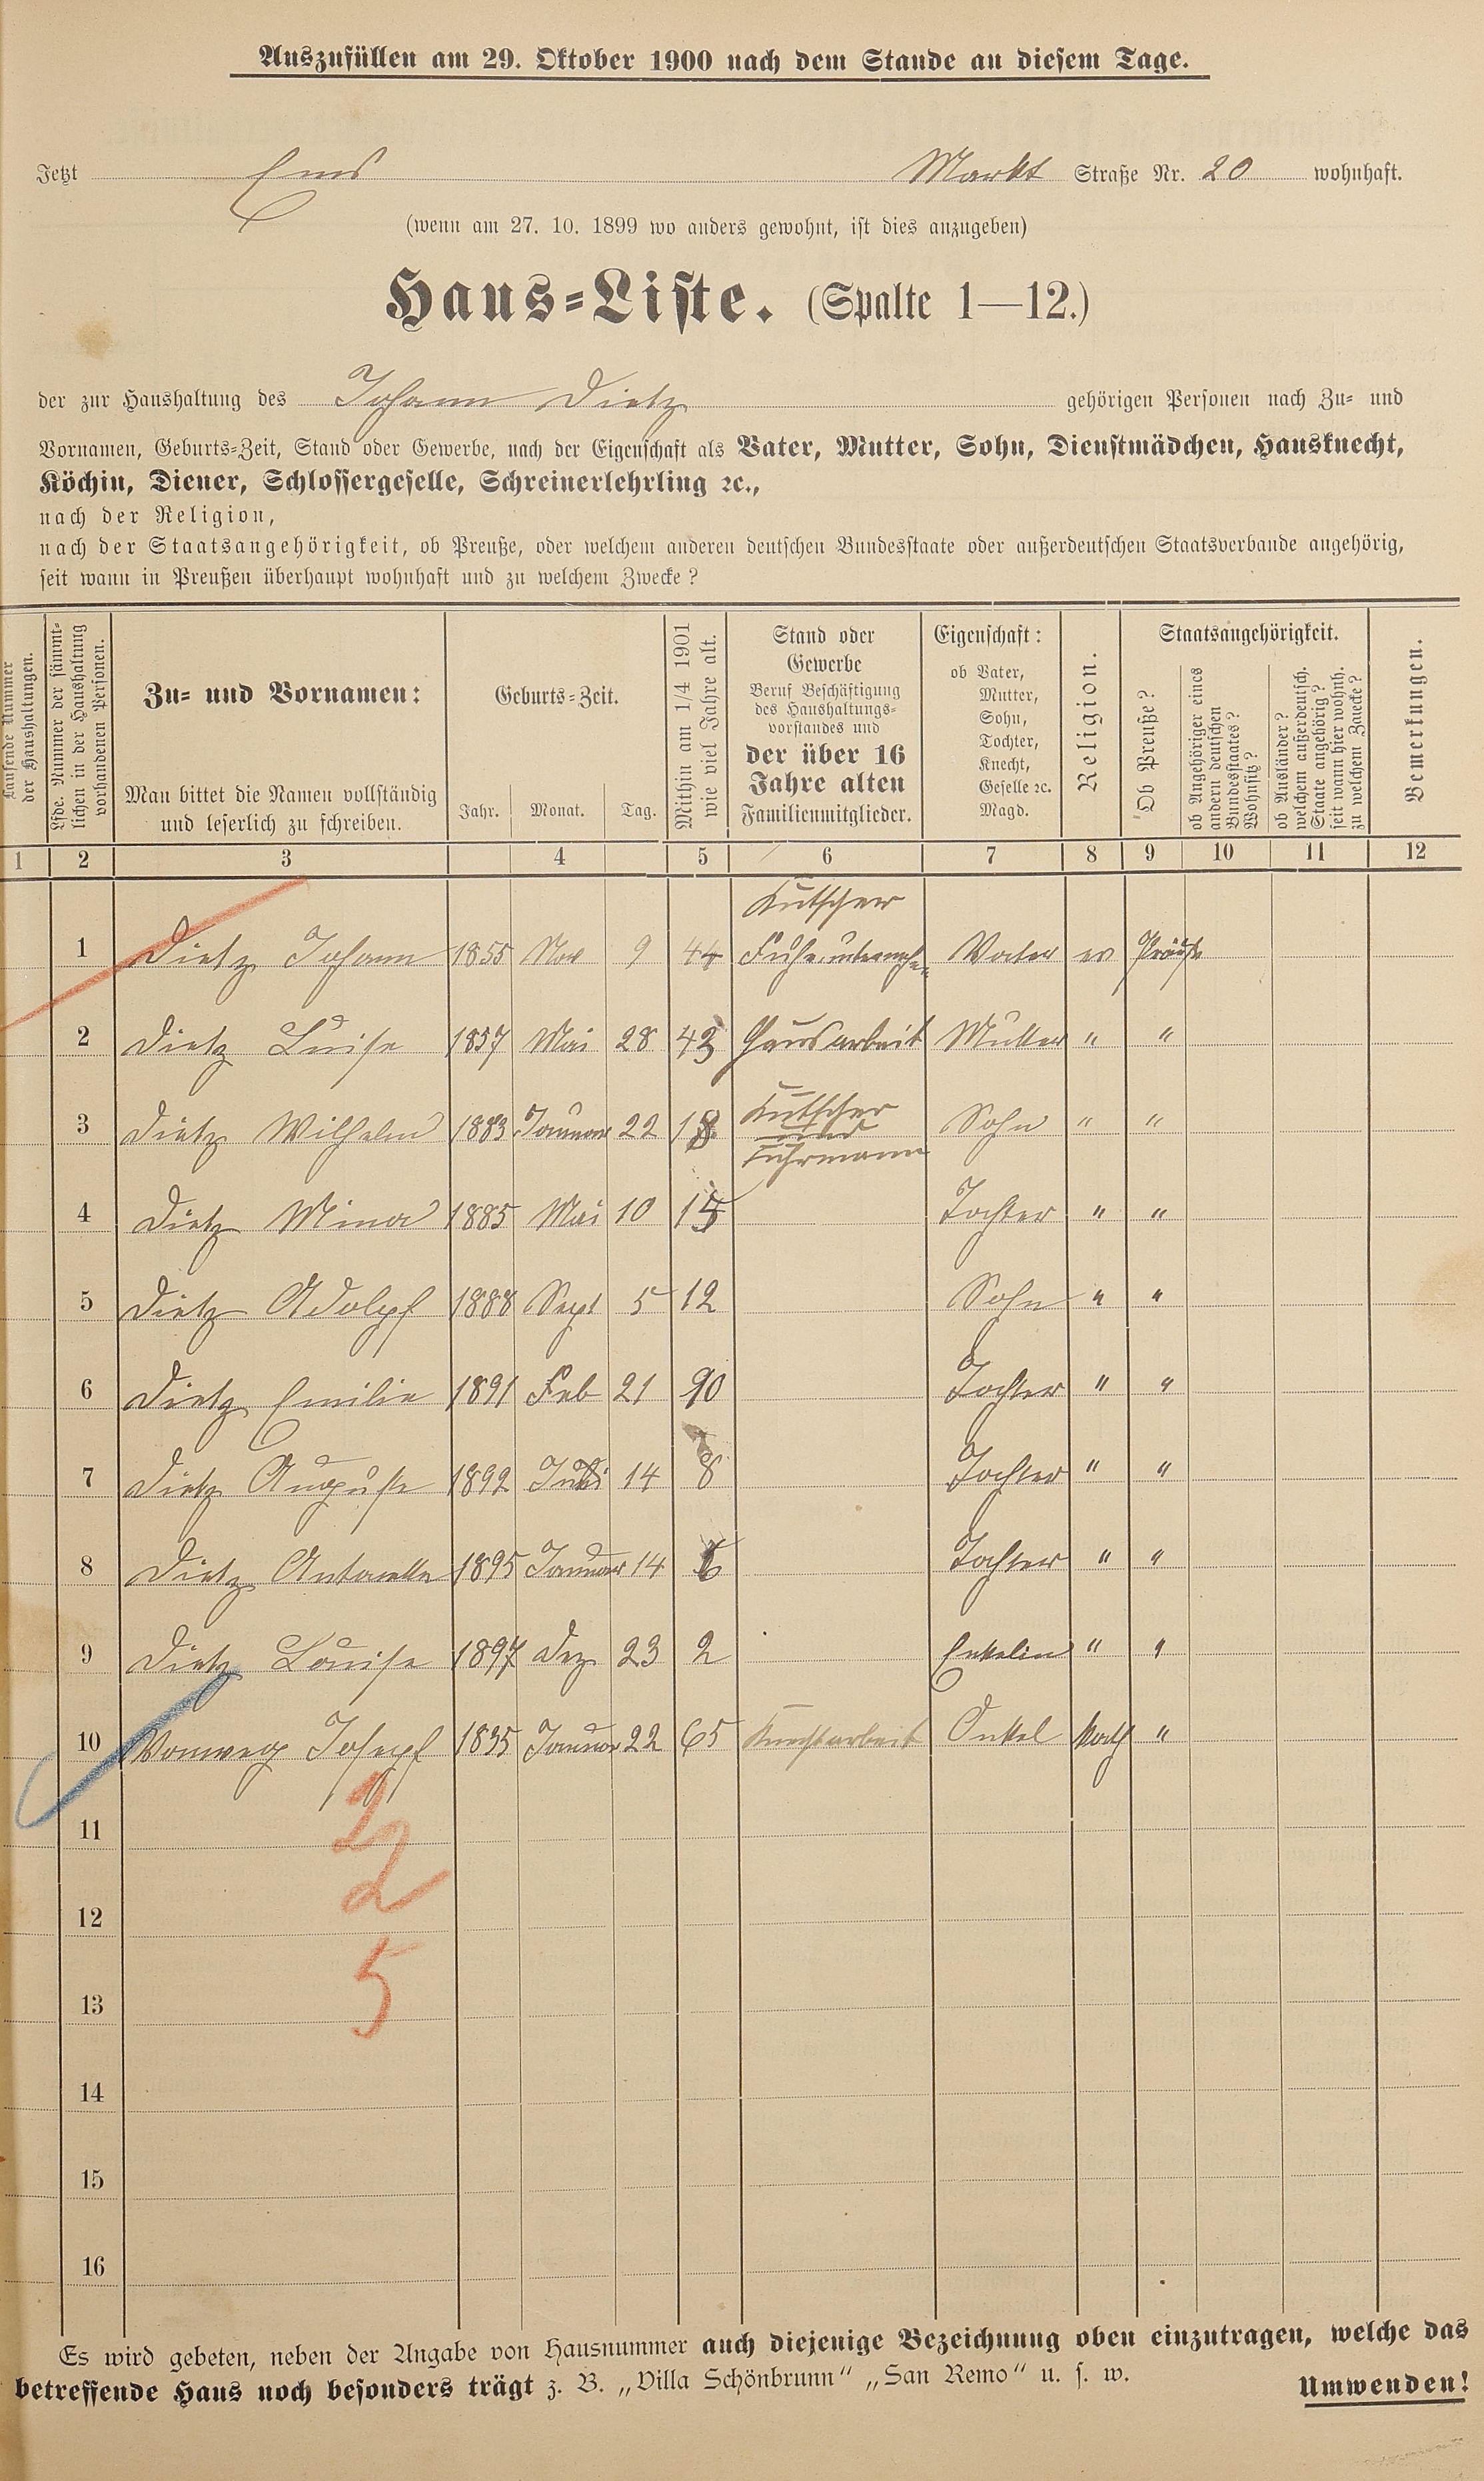 Auszufüllen am 29. Oktober 1900 nach dem Stande an diesem Tage.
Jetzt Ems Markt Straße Nr. 20 wohnhaft.
(wenn am 27. 10. 1899 wo anders gewohnt, ist dies anzugeben)
Haus-Liste. (Spalte 1—12.)
der zur Haushaltung des Johann Dietz gehörigen Personen nach Zu- und
Vornamen, Geburts-Zeit, Stand oder Gewerbe, nach der Eigenschaft als Vater, Mutter, Sohn, Dienstmädchen, Hausknecht,
Köchin, Diener, Schlossergeselle, Schreinerlehrling ꝛc.,
nach der Religion,
nach der Staatsangehörigkeit, ob Preuße, oder welchem anderen deutschen Bundesstaate oder außerdeutschen Staatsverbande angehörig,
seit wann in Preußen überhaupt wohnhaft und zu welchem Zwecke?
Laufende Nummer
der Haushaltungen.
Lfde. Nummer der sämmt-
lichen in der Haushaltung
vorhandenen Personen.
Zu- und Vornamen:
Man bittet die Namen vollständig
und leserlich zu schreiben.
Geburts-Zeit.
Jahr. Monat. Tag.
Mithin am 1/4 1901
wie viel Jahre alt.
Stand oder
Gewerbe
Beruf Beschäftigung
des Haushaltungs-
vorstandes und
der über 16
Jahre alten
Familienmitglieder.
Eigenschaft:
ob Vater,
Mutter,
Sohn,
Tochter,
Knecht,
Geselle ꝛc.
Magd.
Religion.
Staatsangehörigkeit.
Ob Preuße?
ob Angehöriger eines
andern deutschen
Bundesstaates?
Wohnsitz?
ob Ausländer?
welchem außerdeutsch.
Staate angehörig?
seit wann hier wohnh.
zu welchem Zwecke?
Bemerkungen.
1 2 3 4 5 6 7 8 9 10 11 12
Kutscher
1 Dietz Johann 1855 Nov 9 44 Fuhrunternehmer Vater ev Preuße
2 Dietz Luise 1857 Mai 28 43 Hausarbeit Mutter " "
3 Dietz Wilhelm 1883 Januar 22 18 Kutscher und Fuhrmann Sohn " "
4 Dietz Mina 1885 Mai 10 15 Tochter " "
5 Dietz Adolpf 1888 Sept 5 12 Sohn " "
6 Dietz Emilie 1891 Feb 21 Tochter " "
7 Dietz Auguste 1892 Juli 14 8 Tochter " "
8 Dietz 1895 Januar 14 6 Tochter " "
9 Dietz Louise 1897 Dez 23 2 Enkelin " "
10 Josepf 1835 Januar 22 65 Onkel Kath "
11
2
12
2
13
5
14
15
16
Es wird gebeten, neben der Angabe von Hausnummer auch diejenige Bezeichnung oben einzutragen, welche das
betreffende Haus noch besonders trägt z. B. „Villa Schönbrunn" „San Remo" u. s. w.
Umwenden!